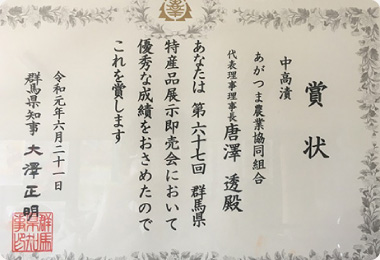 賞状
中高漬
あがつま農業協同組合
代表理事理事長 唐澤 透殿
あなたは 第六十七回 群馬県
特産品展示即売会において
優秀な成績をおさめたので
これを賞します
令和元年六月二十一日
群馬県知事 大澤正明